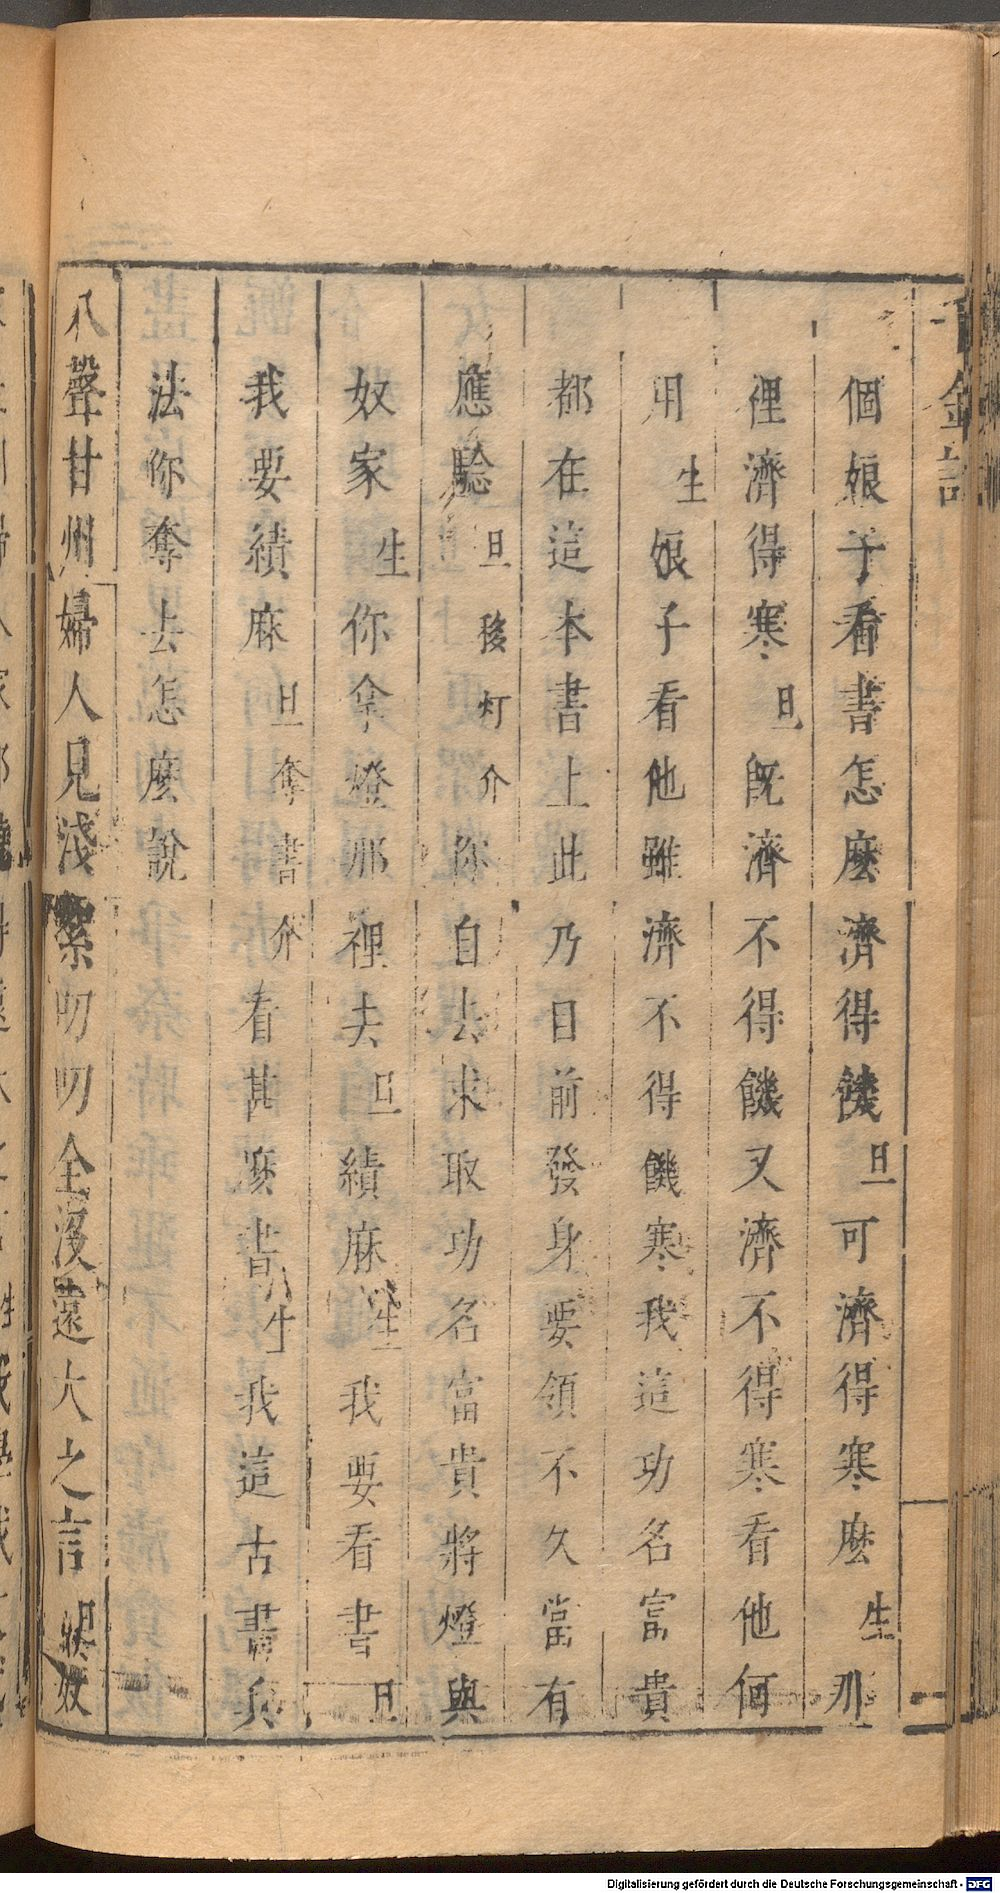 千金記
個娘子看書怎麽濟得饑旦可濟得寒麽生那
裡濟得寒旦既濟不得饑又濟不得寒看他何
用生娘子看他雖濟不得饑寒我這功名富貴
都在這本書上此乃目前發身要領不久當有
應騐旦移灯介你自去求取功名富貴將燈與
奴家生你拿燈那裡去旦績麻生我要看書旦
我要績麻旦奪書介看甚麽書生我這古書兵
法你奪去怎麽說
八聲甘州婦人見淺絮叨叨全没遠大之言旦奴
Digitalisierung gefördert durch die Deutsche Forschungsgemeinschaft - DFG